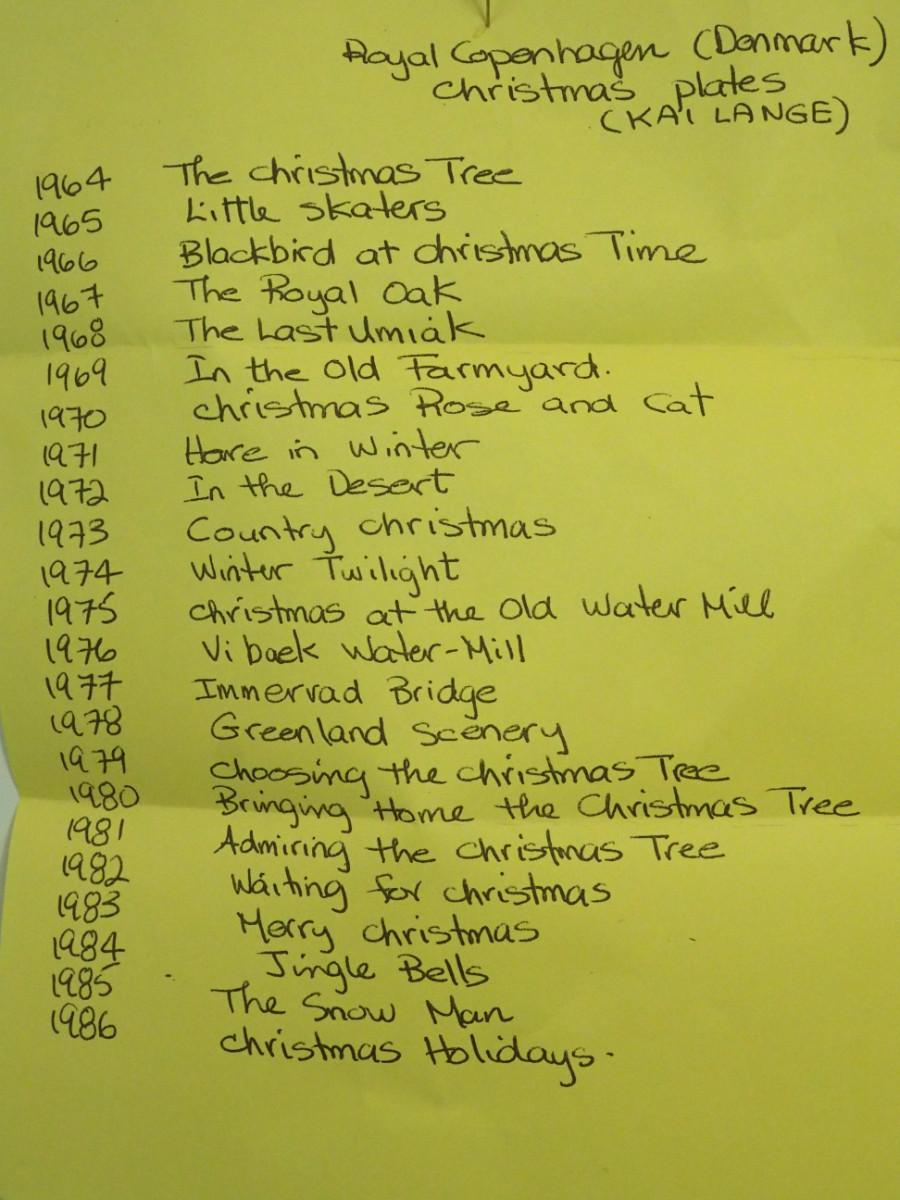 Royal Copenhagen (Denmark)
christmas plates
(KAI LANGE)
1964 The christmas Tree
1965 Little skaters
1966 Blackbird at christmas Time
1967 The Royal Oak
1968 The Last Umiak
1969 In the Old Farmyard.
1970 christmas Rose and Cat
1971 Hare in Winter
1972 In the Desert
1973 Country christmas
1974 Winter Twilight
1975 christmas at the Old Water Mill
1976 Vibaek Water-Mill
1977 Immervad Bridge
1978 Greenland Scenery
1979 Choosing the christmas Tree
1980 Bringing Home the Christmas Tree
1981 Admiring the christmas Tree
1982 Waiting for christmas
1983 Merry christmas
1984 Jingle Bells
1985 The Snow Man
1986 christmas Holidays.